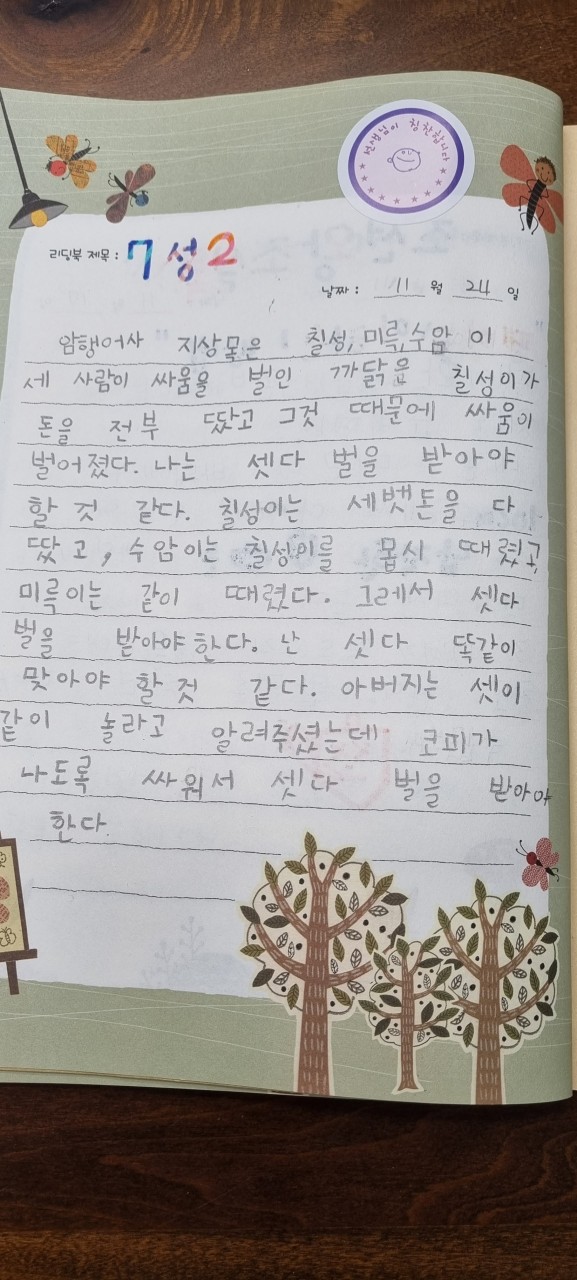 선생님이 칭찬합니다
리딩북 제목 : 7성2
날짜 : 11 월 24 일
암행어사 지상목은 칠성, 미륵, 수암 이
세 사람이 싸움을 벌인 까닭은 칠성이가
돈을 전부 땄고 그것 때문에 싸움이
벌어졌다. 나는 셋다 벌을 받아야
할 것 같다. 칠성이는 세벳돈을 다
땄고, 수암이는 칠성이를 몹시 때렸고,
미륵이는 같이 때렸다. 그레서 셋다
벌을 받아야 한다. 난 셋다 똑같이
맞아야 할 것 같다. 아버지는 셋이
같이 놀라고 알려주셨는데 코피가
나도록 싸워서 셋다 벌을 받아야
한다.